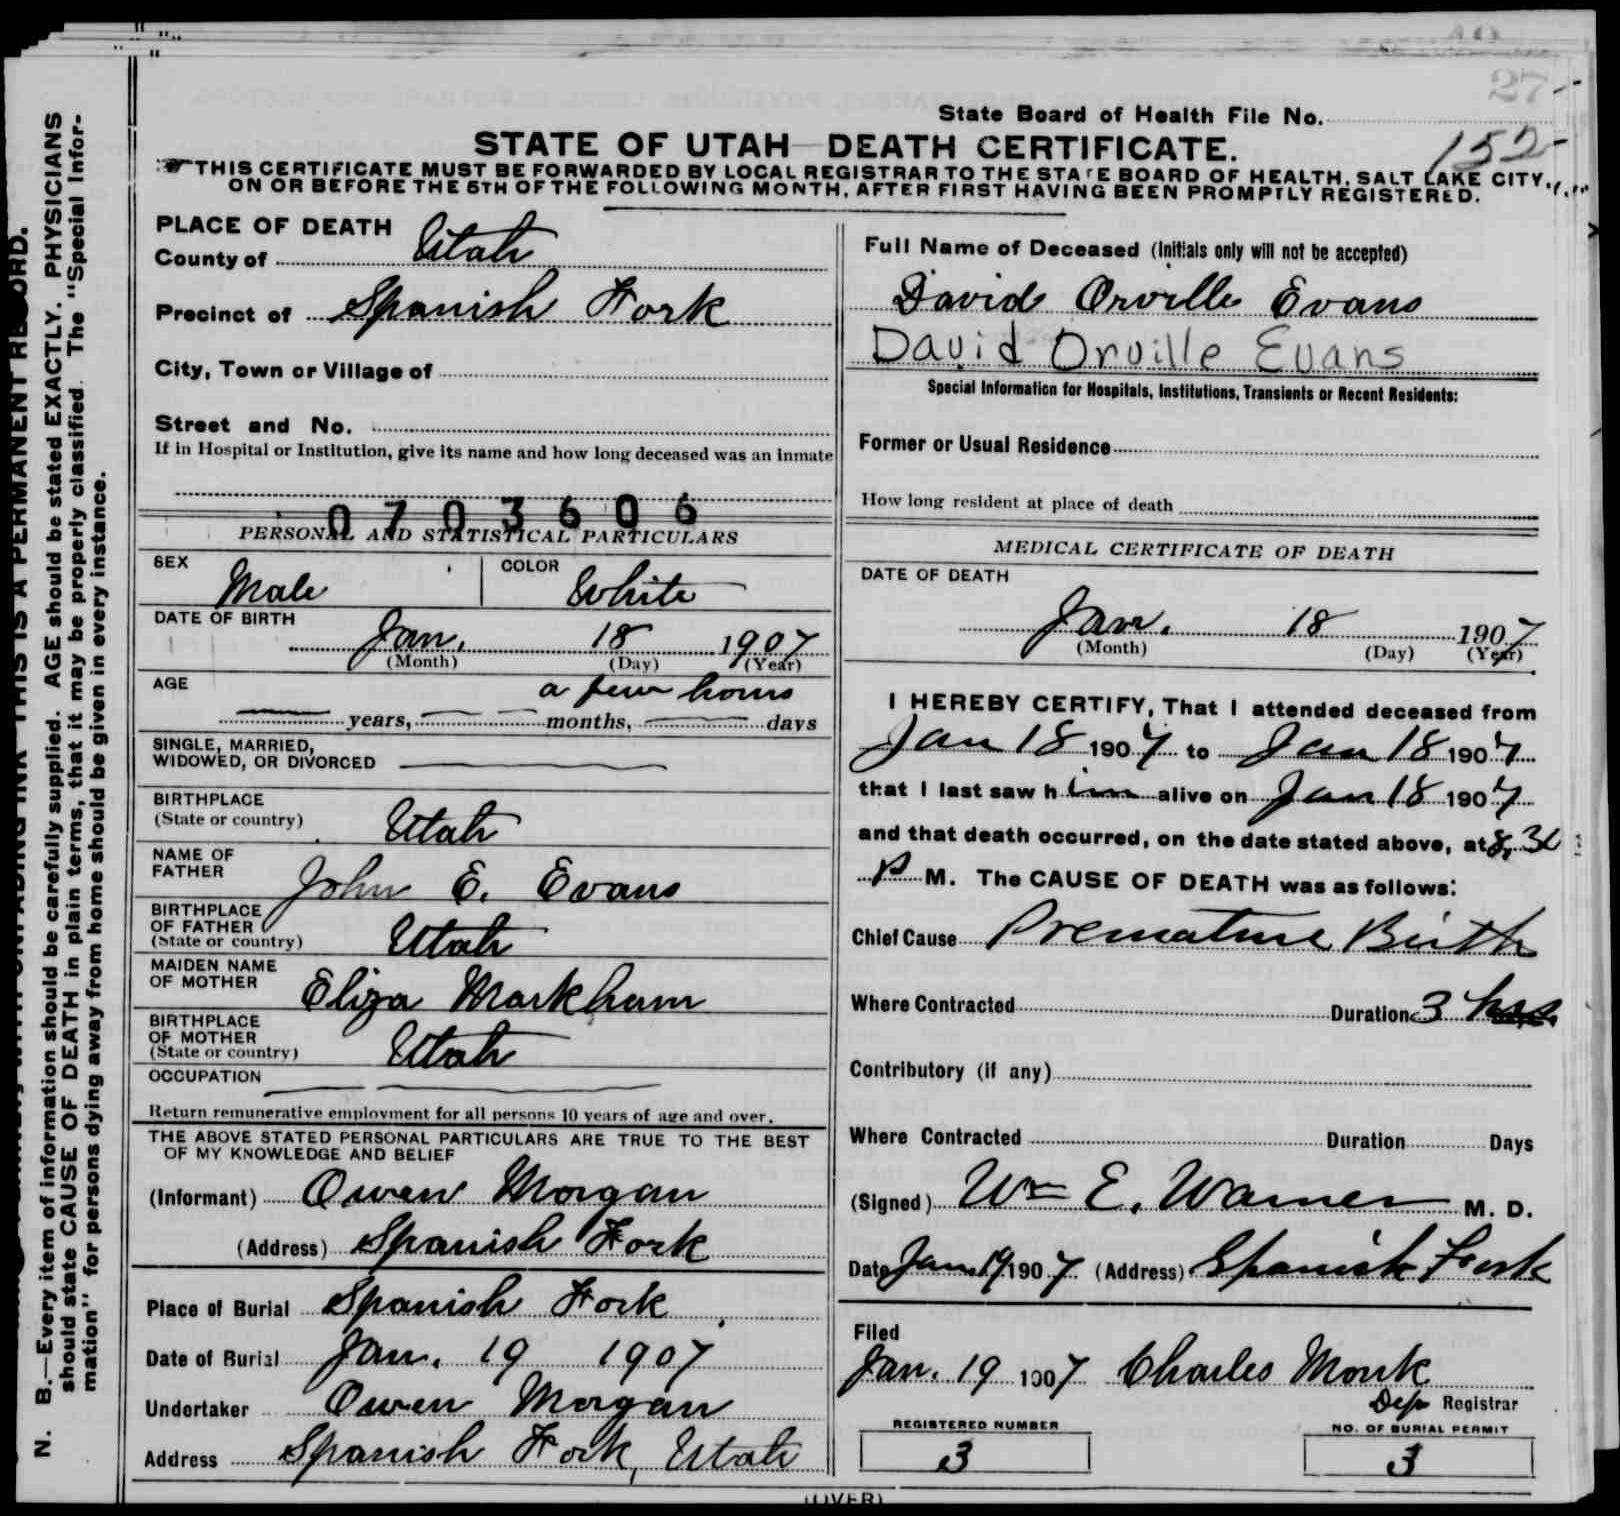 27
State Board of Health File No.
152
STATE OF UTAH—DEATH CERTIFICATE.
THIS CERTIFICATE MUST BE FORWARDED BY LOCAL REGISTRAR TO THE STATE BOARD OF HEALTH, SALT LAKE CITY,
ON OR BEFORE THE 5TH OF THE FOLLOWING MONTH, AFTER FIRST HAVING BEEN PROMPTLY REGISTERED.
PLACE OF DEATH
County of Utah
Precinct of Spanish Fork
City, Town or Village of
Street and No.
If in Hospital or Institution, give its name and how long deceased was an inmate
0703606
PERSONAL AND STATISTICAL PARTICULARS
SEX Male COLOR White
DATE OF BIRTH
Jan. 18 1907
(Month) (Day) (Year)
AGE a few hours
years, months, days
SINGLE, MARRIED,
WIDOWED, OR DIVORCED
BIRTHPLACE
(State or country) Utah
NAME OF
FATHER John E. Evans
BIRTHPLACE
OF FATHER
(State or country) Utah
MAIDEN NAME
OF MOTHER Eliza Markham
BIRTHPLACE
OF MOTHER
(State or country) Utah
OCCUPATION
Return remunerative employment for all persons 10 years of age and over.
THE ABOVE STATED PERSONAL PARTICULARS ARE TRUE TO THE BEST
OF MY KNOWLEDGE AND BELIEF
(Informant) Owen Morgan
(Address) Spanish Fork
Place of Burial Spanish Fork
Date of Burial Jan. 19 1907
Undertaker Owen Morgan
Address Spanish Fork, Utah
Full Name of Deceased (Initials only will not be accepted)
David Orville Evans
David Orville Evans
Special Information for Hospitals, Institutions, Transients or Recent Residents:
Former or Usual Residence
How long resident at place of death
MEDICAL CERTIFICATE OF DEATH
DATE OF DEATH
Jan. 18 1907
(Month) (Day) (Year)
I HEREBY CERTIFY, That I attended deceased from
Jan 18 1907 to Jan 18 1907
that I last saw him alive on Jan 18 1907
and that death occurred, on the date stated above, at 8,30
P M. The CAUSE OF DEATH was as follows:
Chief Cause Premature Birth
Where Contracted Duration 3 hrs
Contributory (if any)
Where Contracted Duration Days
(Signed) Wm E. Warner M. D.
Date Jan 19 1907 (Address) Spanish Fork
Filed
Jan. 19 1907 Charles Monk
Dep Registrar
REGISTERED NUMBER
3
NO. OF BURIAL PERMIT
3
(OVER)
N. B.—Every item of information should be carefully supplied. AGE should be stated EXACTLY. PHYSICIANS
should state CAUSE OF DEATH in plain terms, that it may be properly classified. The "Special Infor-
mation" for persons dying away from home should be given in every instance.
UNFADING INK—THIS IS A PERMANENT RECORD.